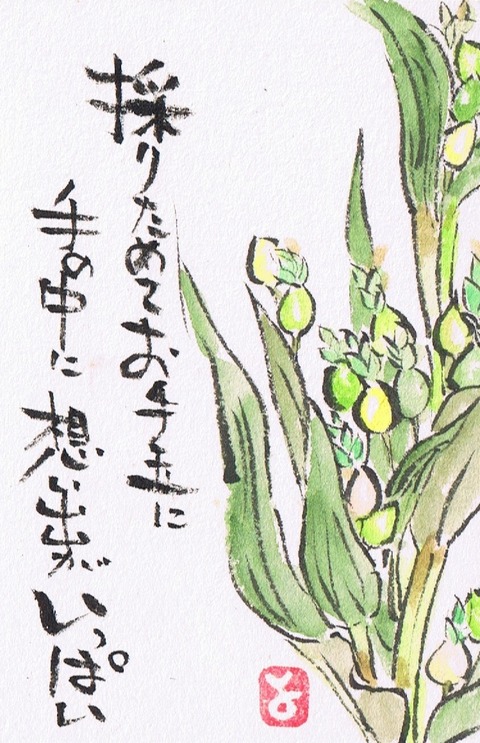 採りためてお手玉に
手の中に想い出がいっぱい
と